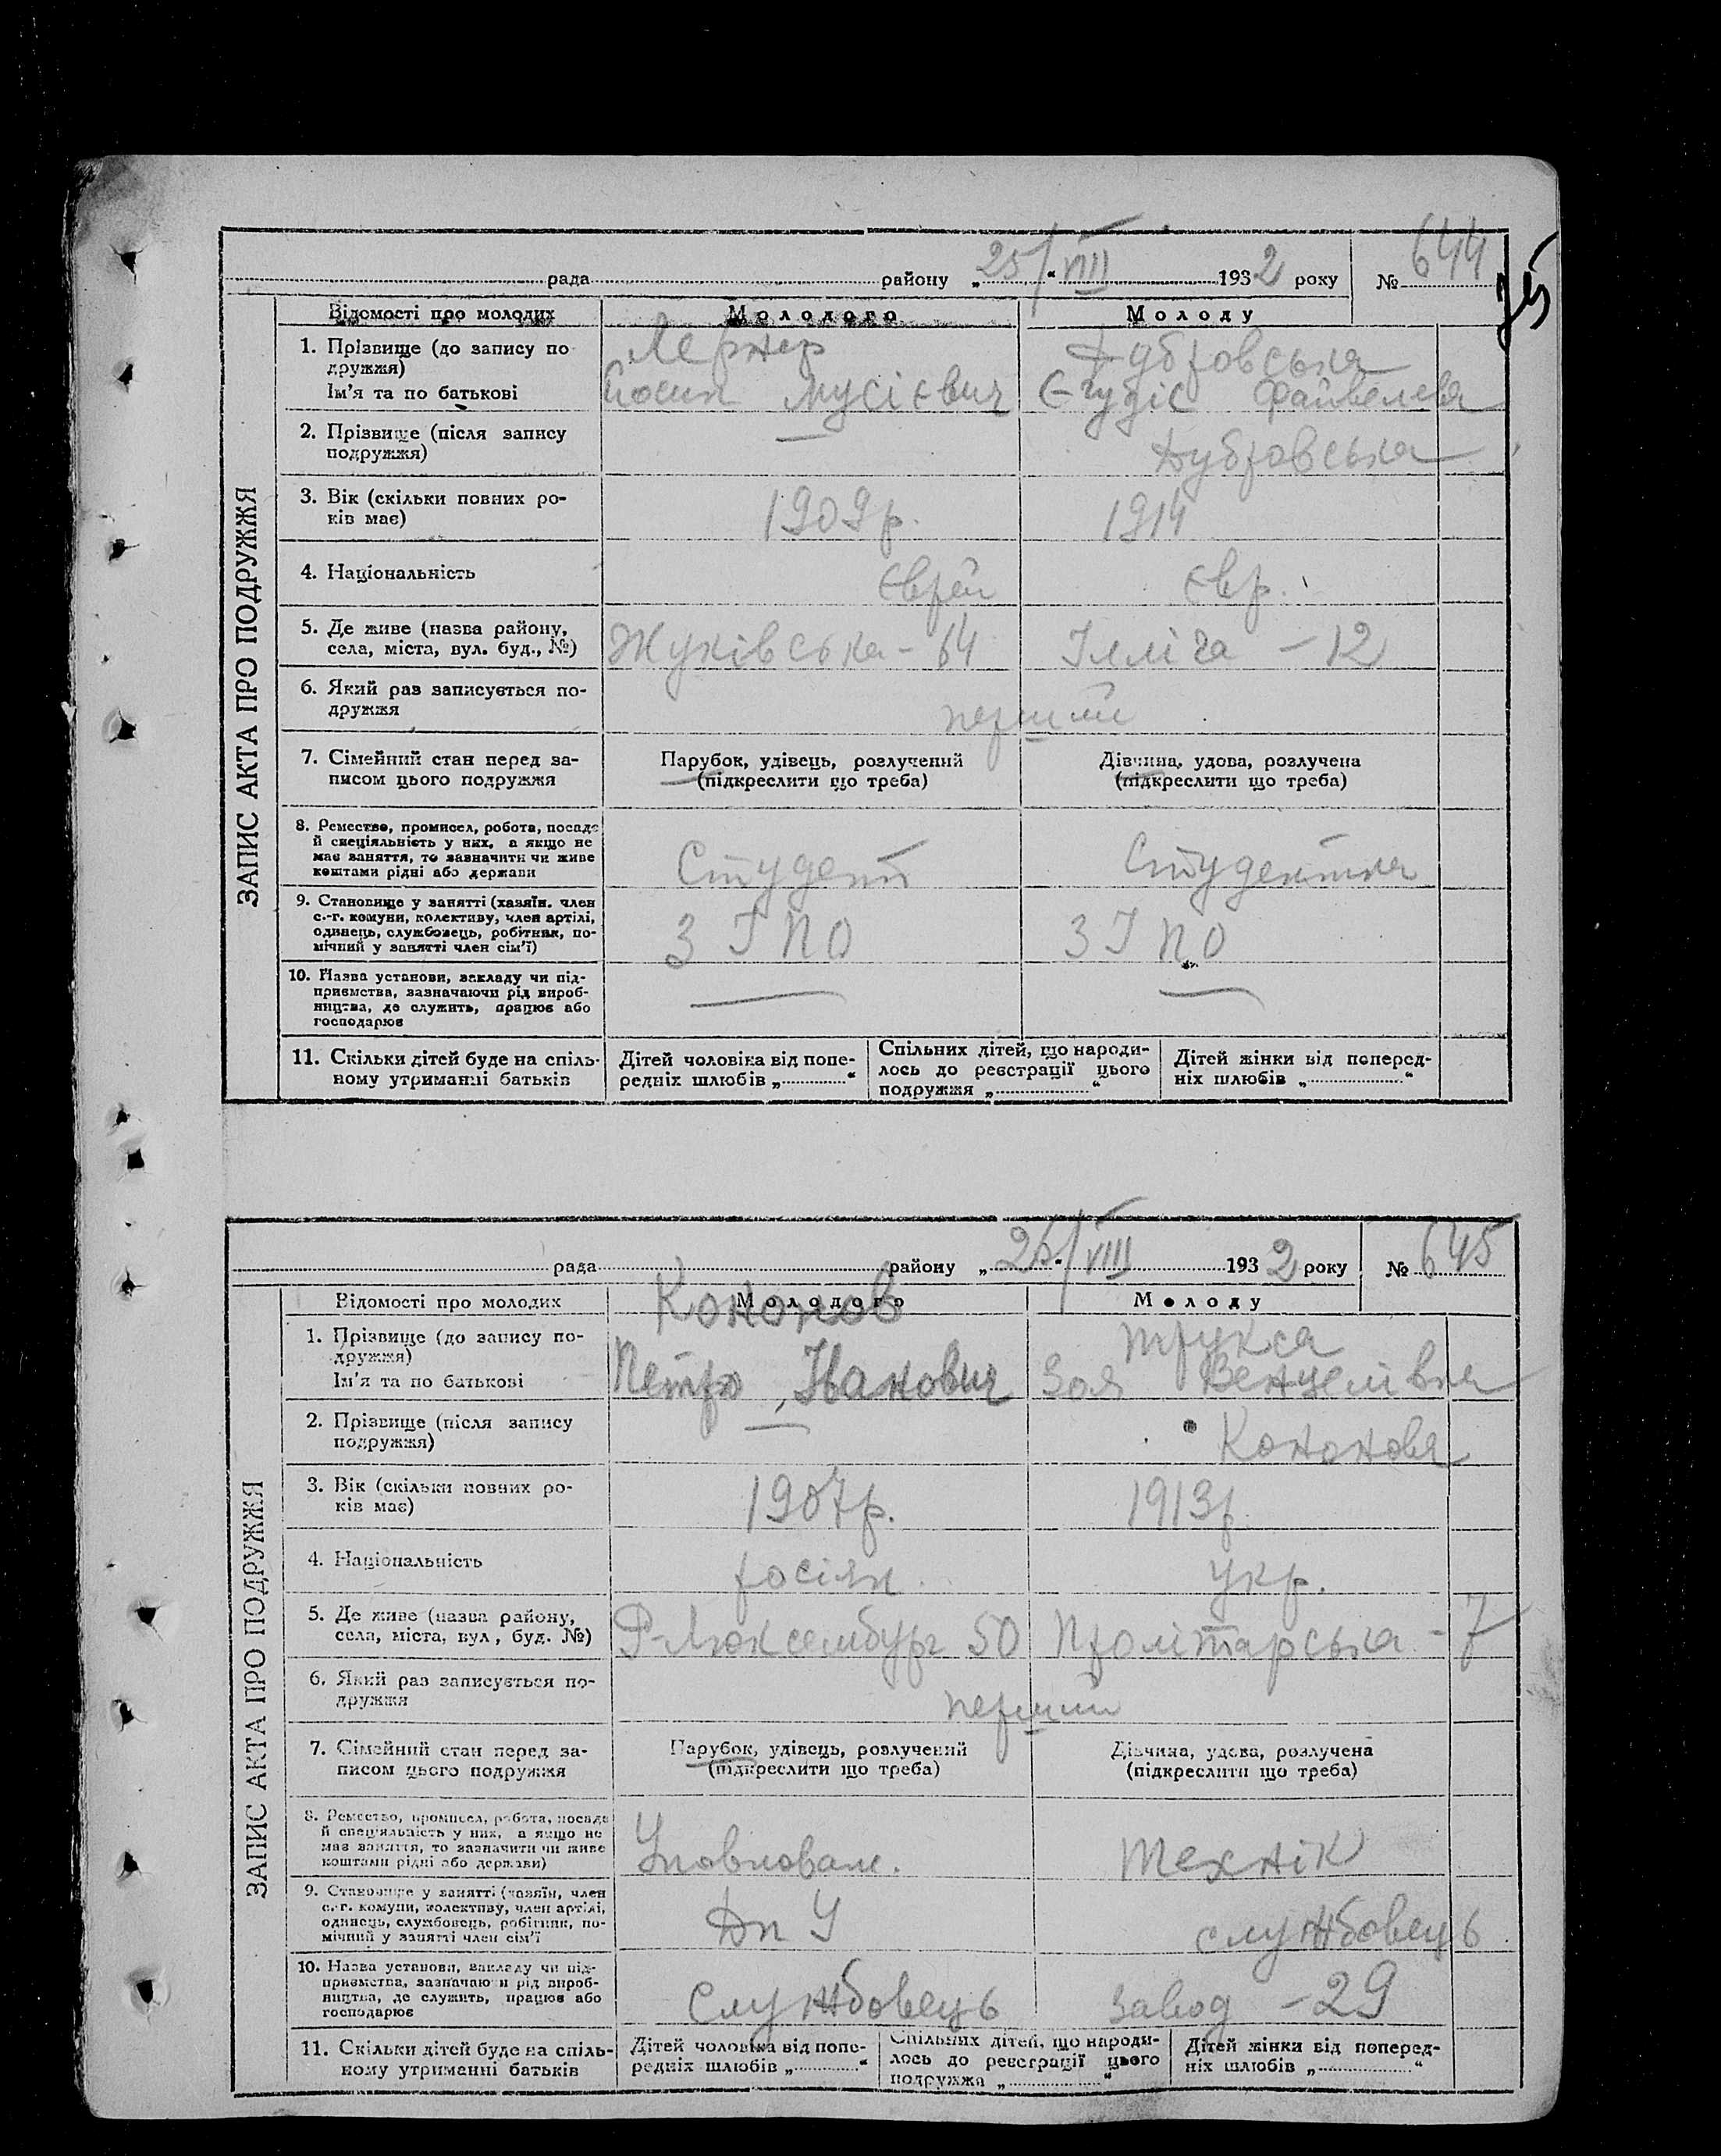 рада району „25/“ VIII 1932 року № 644
75
ЗАПИС АКТА ПРО ПОДРУЖЖЯ
Відомості про молодих Молодого Молоду
1. Прізвище (до запису по Лернер Дубровська
дружжя)
Ім'я та по батькові Йосип Мусієвич Єгудіс Файвелева
2. Прізвище (після запису —
подружжя) Дубровська
3. Вік (скільки повних ро- 1909р. 1914
ків має)
4. Національність Єврей Євр.
5. Де живе (назва району,
села, міста, вул. буд., №) Жуківська - 64 Ілліча - 12
6. Який раз записується по-
дружжя перший
7. Сімейний стан перед за- Парубок, удівець, розлучений Дівчина, удова, розлучена
писом цього подружжя (підкреслити що треба) (підкреслити що треба)
8. Ремество, промисел, робота, посада
й спеціяльність у них, а якщо не
має заняття, то зазначити чи живе
коштами рідні або держави Студент Студентка
9. Становище у занятті (хазяїн, член
с.-г. комуни, колективу, член артілі,
одинець, службовець, робітник, по-
мічний у занятті член сім'ї) З І Н О З І Н О
10. Назва установи, закладу чи під-
приємства, зазначаючи рід вироб-
ництва, де служить, працює або — —
господарює
11. Скільки дітей буде на спіль-
ному утриманні батьків
Дітей чоловіка від попе-
редніх шлюбів „ “
Спільних дітей, що народи-
лось до реєстрації цього
подружжя „ “
Дітей жінки від поперед-
ніх шлюбів „ “
рада району „25/“ VIII 1932 року № 645
ЗАПИС АКТА ПРО ПОДРУЖЖЯ
Відомості про молодих Молодого Молоду
1. Прізвище (до запису по- Кононов Трукса
дружжя)
Ім'я та по батькові Петро Іванович Зоя Венцелівна
2. Прізвище (після запису —
подружжя) Кононова
3. Вік (скільки повних ро- 1907р. 1913р
ків має)
4. Національність росіян. укр.
5. Де живе (назва району,
села, міста, вул, буд. №) Р-Люксембург 50 Пролітарська - 7
6. Який раз записується по-
дружжя перший
7. Сімейний стан перед за- Парубок, удівець, розлучений Дівчина, удова, розлучена
писом цього подружжя (підкреслити що треба) (підкреслити що треба)
8. Ремество, промисел, робота, посада
й спеціяльність у них, а якщо не
має заняття, то зазначити чи живе
коштами рідні або держави) Уповноваж. Технік
9. Становище у занятті (хазяїн, член
с.-г. комуни, колективу, член артілі,
одинець, службовець, робітник, по-
мічний у занятті член сім'ї ДПУ службовець
10. Назва установи, закладу чи під-
приємства, зазначаючи рід вироб-
ництва, де служить, працює або
господарює Службовець завод - 29
11. Скільки дітей буде на спіль-
ному утриманні батьків
Дітей чоловіка від попе-
редніх шлюбів „ “
Спільних дітей, що народи-
лось до реєстрації цього
подружжа „ “
Дітей жінки від поперед-
ніх шлюбів „ “